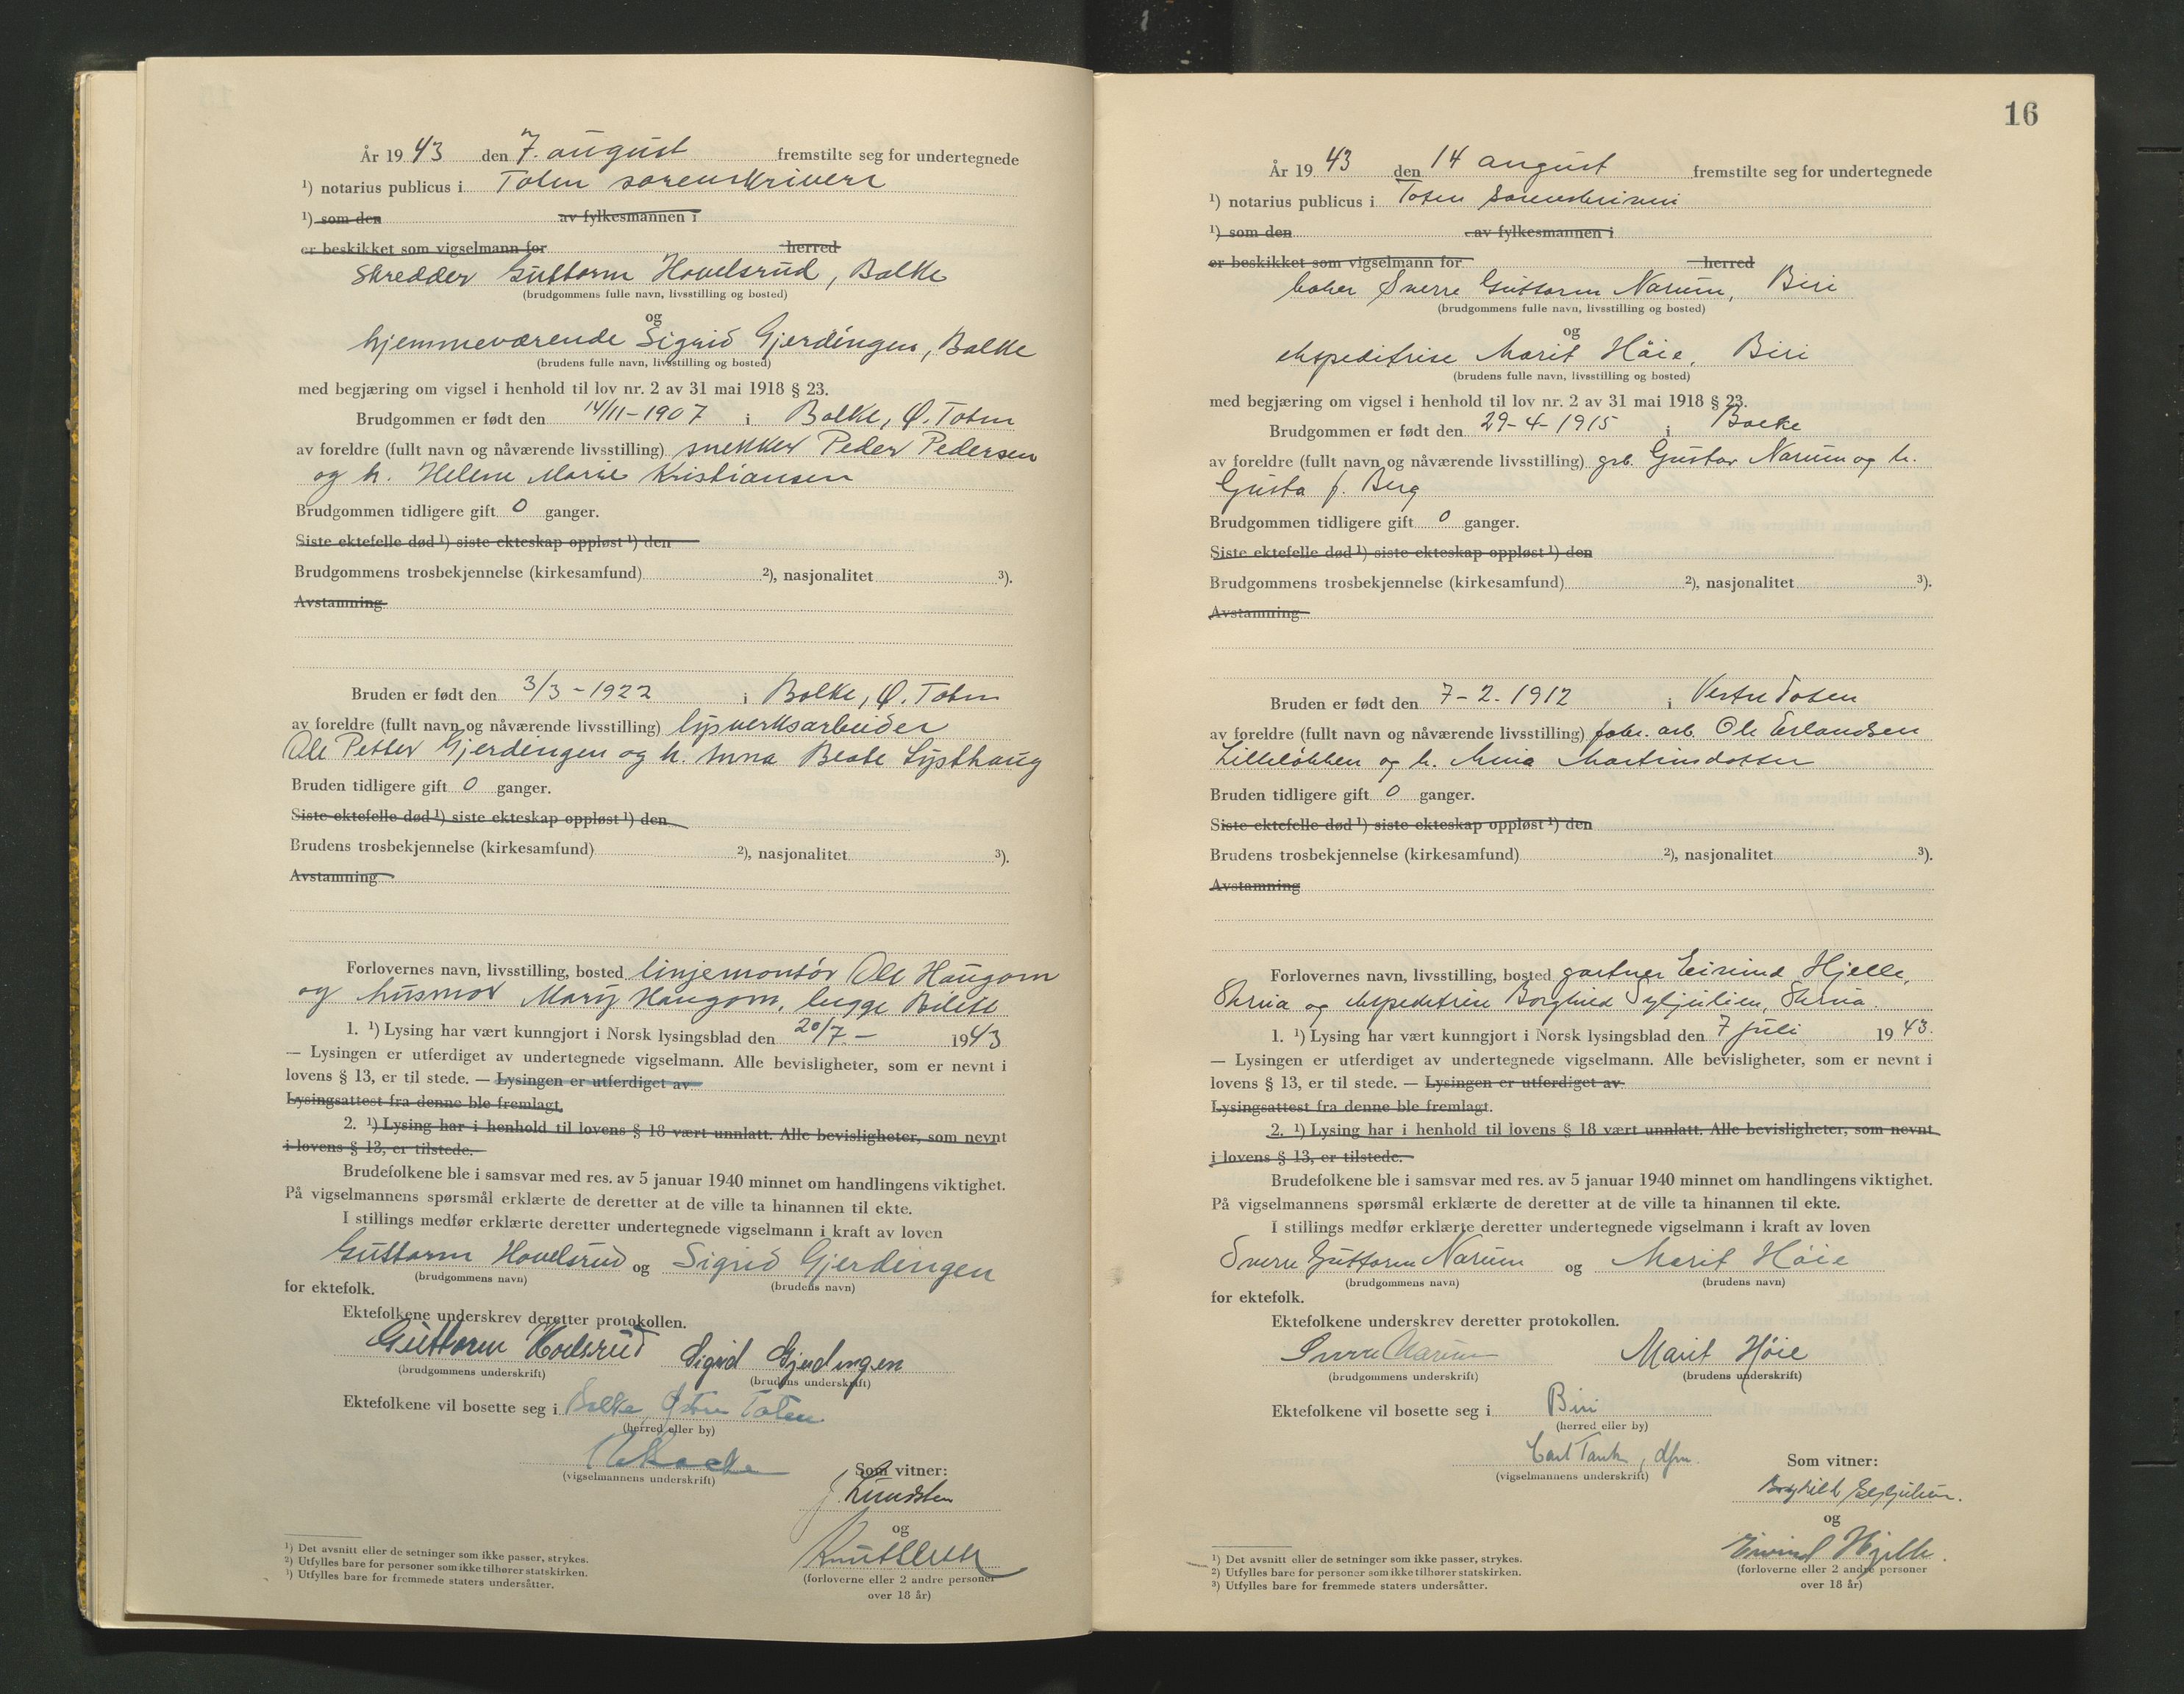 År 1943 den 7. august fremstilte seg for undertegnede
¹) notarius publicus i Toten sorenskriveri
¹) som den av fylkesmannen i
er beskikket som vigselmann for herred
skredder Guttorm Hovelsrud, Balke
(brudgommens fulle navn, livsstilling og bosted)
og
hjemmeværende Sigrid Gjerdingen, Balke
(brudens fulle navn, livsstilling og bosted)
med begjæring om vigsel i henhold til lov nr. 2 av 31 mai 1918 § 23.
Brudgommen er født den 14/11-1907 i Balke, Ø. Toten
av foreldre (fullt navn og nåværende livsstilling) snekker Peder Pedersen
og h. Helene Marie Kristiansen
Brudgommen tidligere gift 0 ganger.
Siste ektefelle død ¹) siste ekteskap oppløst ¹) den
Brudgommens trosbekjennelse (kirkesamfund) ²), nasjonalitet ³).
Avstamning
Bruden er født den 3/3-1922 i Balke, Ø. Toten
av foreldre (fullt navn og nåværende livsstilling) lysverksarbeider
Ole Petter Gjerdingen og h. Anna Beate Lysthaug
Bruden tidligere gift 0 ganger.
Siste ektefelle død ¹) siste ekteskap oppløst ¹) den
Brudens trosbekjennelse (kirkesamfund) ²), nasjonalitet ³).
Avstamning
Forlovernes navn, livsstilling, bosted linjemontör Ole Haugom
og husmor Mary Haugom, begge
1. ¹) Lysing har vært kunngjort i Norsk lysingsblad den 20/7- 1943
— Lysingen er utferdiget av undertegnede vigselmann. Alle bevisligheter, som er nevnt i
lovens § 13, er til stede. — Lysingen er utferdiget av
Lysingsattest fra denne ble fremlagt.
2. ¹) Lysing har i henhold til lovens § 18 vært unnlatt. Alle bevisligheter, som nevnt
i lovens § 13, er tilstede.
Brudefolkene ble i samsvar med res. av 5 januar 1940 minnet om handlingens viktighet.
På vigselmannens spørsmål erklærte de deretter at de ville ta hinannen til ekte.
I stillings medfør erklærte deretter undertegnede vigselmann i kraft av loven
Guttorm Hovelsrud og Sigrid Gjerdingen
(brudgommens navn) (brudens navn)
for ektefolk.
Ektefolkene underskrev deretter protokollen.
Guttorm Hovelsrud Sigrid Gjerdingen
(brudgommens underskrift) (brudens underskrift)
Ektefolkene vil bosette seg i Balke, Østre Toten
(herred eller by)
(vigselmannens underskrift)
Som vitner:
J. Knudsen
og
(forloverne eller 2 andre personer
over 18 år)
¹) Det avsnitt eller de setninger som ikke passer, strykes.
²) Utfylles bare for personer som ikke tilhører statskirken.
³) Utfylles bare for fremmede staters undersåtter.
16
År 1943 den 14 august fremstilte seg for undertegnede
¹) notarius publicus i Toten Sorenskriveri
¹) som den av fylkesmannen i
er beskikket som vigselmann for herred
baker Sverre Guttorm Narum, Biri
(brudgommens fulle navn, livsstilling og bosted)
og
ekspeditrise Marit Høie, Biri
(brudens fulle navn, livsstilling og bosted)
med begjæring om vigsel i henhold til lov nr. 2 av 31 mai 1918 § 23.
Brudgommen er født den 29-4-1915 i Balke
av foreldre (fullt navn og nåværende livsstilling) grb. Gustav Narum og h.
Gusta f. Berg
Brudgommen tidligere gift 0 ganger.
Siste ektefelle død ¹) siste ekteskap oppløst ¹) den
Brudgommens trosbekjennelse (kirkesamfund) ²), nasjonalitet ³).
Avstamning
Bruden er født den 7-2-1912 i Vestre Toten
av foreldre (fullt navn og nåværende livsstilling) fabr. arb. Ole Erlandsen
Lilleløkken og h. Mina Martinsdotter
Bruden tidligere gift 0 ganger.
Siste ektefelle død ¹) siste ekteskap oppløst ¹) den
Brudens trosbekjennelse (kirkesamfund) ²), nasjonalitet ³).
Avstamning
Forlovernes navn, livsstilling, bosted gartner Eivind Hjelle,
Skreia og ekspeditrise Borghild Syljulien, Skreia.
1. ¹) Lysing har vært kunngjort i Norsk lysingsblad den 7 juli 1943.
— Lysingen er utferdiget av undertegnede vigselmann. Alle bevisligheter, som er nevnt i
lovens § 13, er til stede. — Lysingen er utferdiget av
Lysingsattest fra denne ble fremlagt.
2. ¹) Lysing har i henhold til lovens § 18 vært unnlatt. Alle bevisligheter, som nevnt
i lovens § 13, er tilstede.
Brudefolkene ble i samsvar med res. av 5 januar 1940 minnet om handlingens viktighet.
På vigselmannens spørsmål erklærte de deretter at de ville ta hinannen til ekte.
I stillings medfør erklærte deretter undertegnede vigselmann i kraft av loven
Sverre Guttorm Narum og Marit Høie
(brudgommens navn) (brudens navn)
for ektefolk.
Ektefolkene underskrev deretter protokollen.
Sverre Narum Marit Høie
(brudgommens underskrift) (brudens underskrift)
Ektefolkene vil bosette seg i Biri
(herred eller by)
Carl Tank, dfm.
(vigselmannens underskrift)
Som vitner:
Borghild Syljulien.
og
Eivind Hjelle.
(forloverne eller 2 andre personer
over 18 år)
¹) Det avsnitt eller de setninger som ikke passer, strykes.
²) Utfylles bare for personer som ikke tilhører statskirken.
³) Utfylles bare for fremmede staters undersåtter.